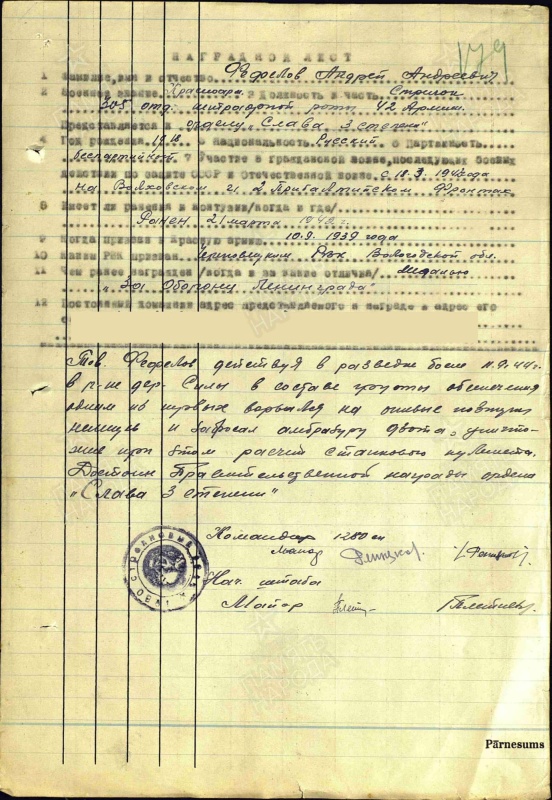 179
НАГРАДНОЙ ЛИСТ
1 Фамилия, имя и отчество Федослов Андрей Андреевич
2 Военное звание Красноарм. 3 Должность и часть Стрелок
305 отд. штрафной роты 42 Армии.
Представляется к ордену "Слава 3 степени"
4 Год рождения 1918 5 Национальность Русский 6 Партийность
беспартийный 7 Участие в гражданской войне, последующих боевых
действиях по защите СССР и Отечественной войне с 18.3.1942 года
на Волховском и 2 Прибалтийском Фронтах
8 Имеет ли ранения и контузии /когда и где/
Ранен 21 марта 1942 г.
9 Когда призван в Красную армию 10.9.1939 года
10 Каким РВК призван РВК Вологодской обл.
11 Чем ранее награжден /когда и за какие отличия/ Медалью
"За Оборону Ленинграда"
12 Постоянный домашний адрес представляемого к награде и адрес его
с
Тов. действуя в разведке боем 11.9.44 г.
в р-не дер. Силы в составе группы обеспечения
одним из первых ворвался на траншею
немцев и забросал амбразуру дзота, уничто-
жив при этом расчет станкового пулемета.
Достоин Правительственной награды ордена
"Слава 3 степени"
Командир 1280 сп
Нач. штаба
Майор
ПАМЯТЬ
НАРОДА
Pārnesums